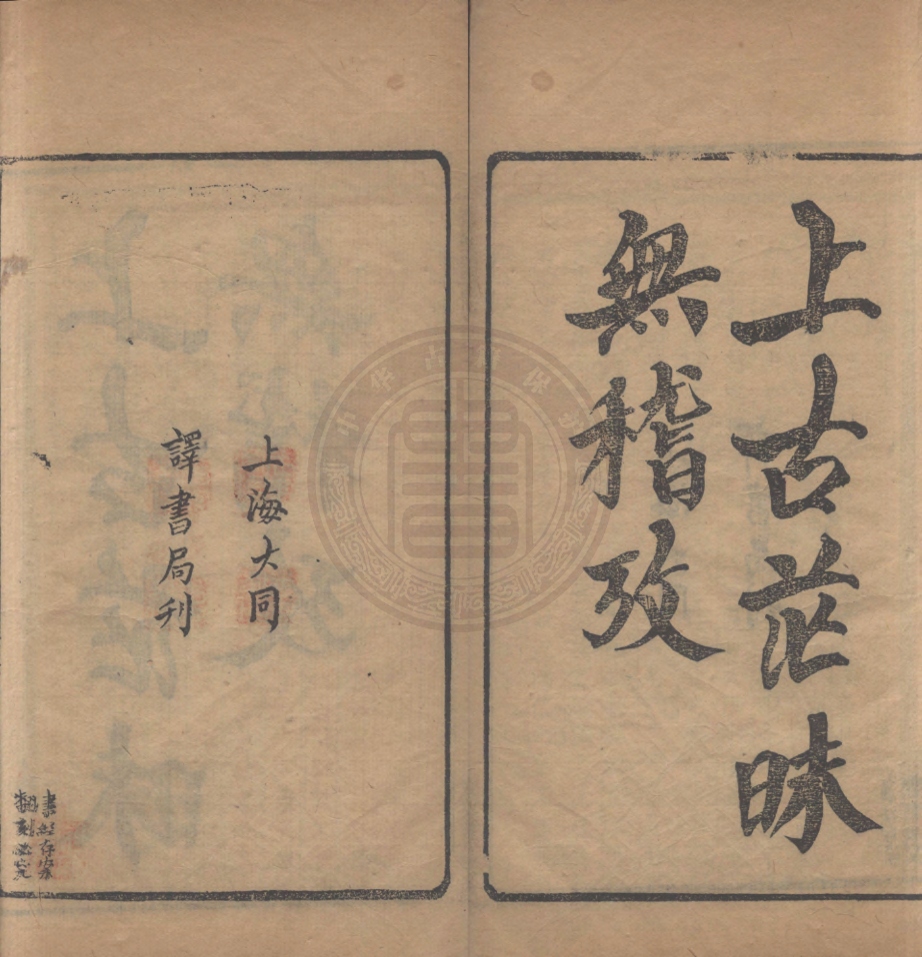 上古茫昧
無稽攷
上海大同
譯書局刊
書經存案
翻刻必究